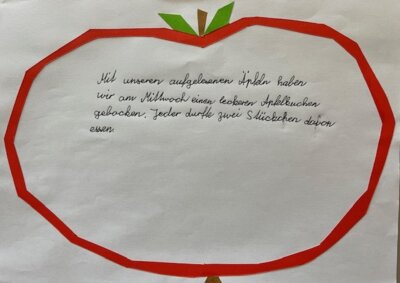 Mit unseren aufgelesenen Äpfeln haben
wir am Mittwoch einen leckeren Apfelkuchen
gebacken. Jeder durfte zwei Stückchen davon
essen.